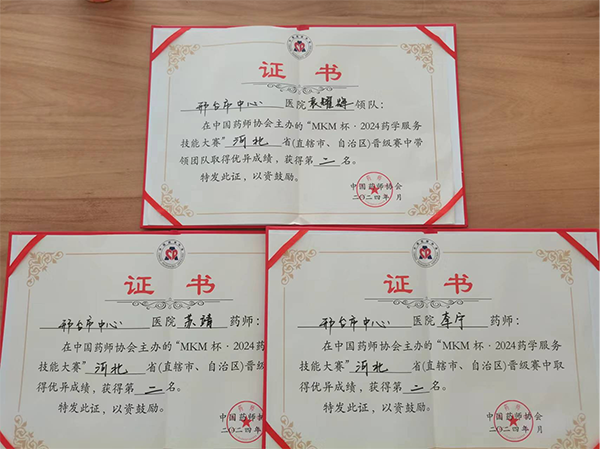 证 书
邢台市中心 医院袁耀婷领队：
在中国药师协会主办的“MKM 杯·2024药学服务
技能大赛”河北省(直辖市、自治区)晋级赛中带
领团队取得优异成绩，获得第二名。
特发此证，以资鼓励。
中国药师协会
二〇二四年 月
证 书
邢台市中心 医院 袁靖 药师：
在中国药师协会主办的“MKM 杯·2024药
技能大赛”河北 省(直辖市、自治区)晋级
得优异成绩，获得第二名。
特发此证，以资鼓励。
中国药师协会
二〇二四年
证 书
邢台市中心 医院 李宁 药师：
在中国药师协会主办的“MKM 杯·2024药学服务
技能大赛”河北 省(直辖市、自治区)晋级赛中取
得优异成绩，获得第二名。
特发此证，以资鼓励。
中国药师协会
二〇二四年 月